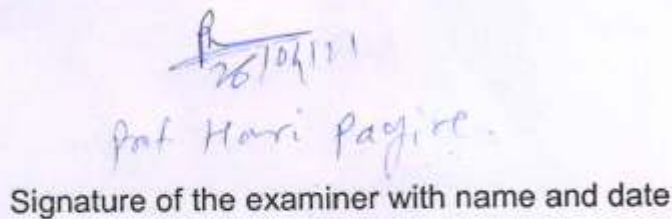 26/04/21
Prof Hari Pagire.
Signature of the examiner with name and date